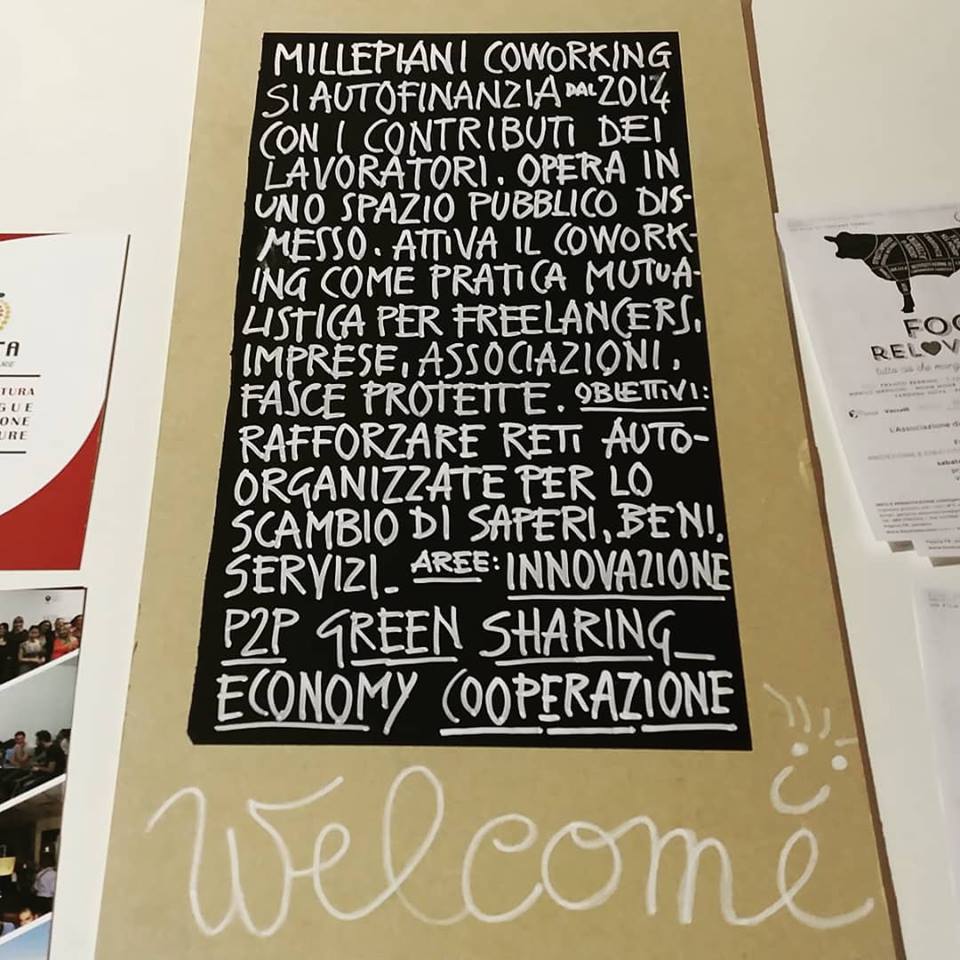 MILLEPIANI COWORKING
SI AUTOFINANZIA DAL 2014
CON I CONTRIBUTI DEI
LAVORATORI. OPERA IN
UNO SPAZIO PUBBLICO DIS-
MESSO. ATTIVA IL COWORK-
ING COME PRATICA MUTUA-
LISTICA PER FREELANCERS,
IMPRESE, ASSOCIAZIONI,
FASCE PROTETTE. OBIETTIVI:
RAFFORZARE RETI AUTO-
ORGANIZZATE PER LO
SCAMBIO DI SAPERI, BENI,
SERVIZI_ AREE: INNOVAZIONE
P2P GREEN SHARING_
ECONOMY COOPERAZIONE
Welcome
TA
TURA
GUE
ONE
URE
FOO
RELOV
tutto ciò che mangi
L'Associazione
sabat